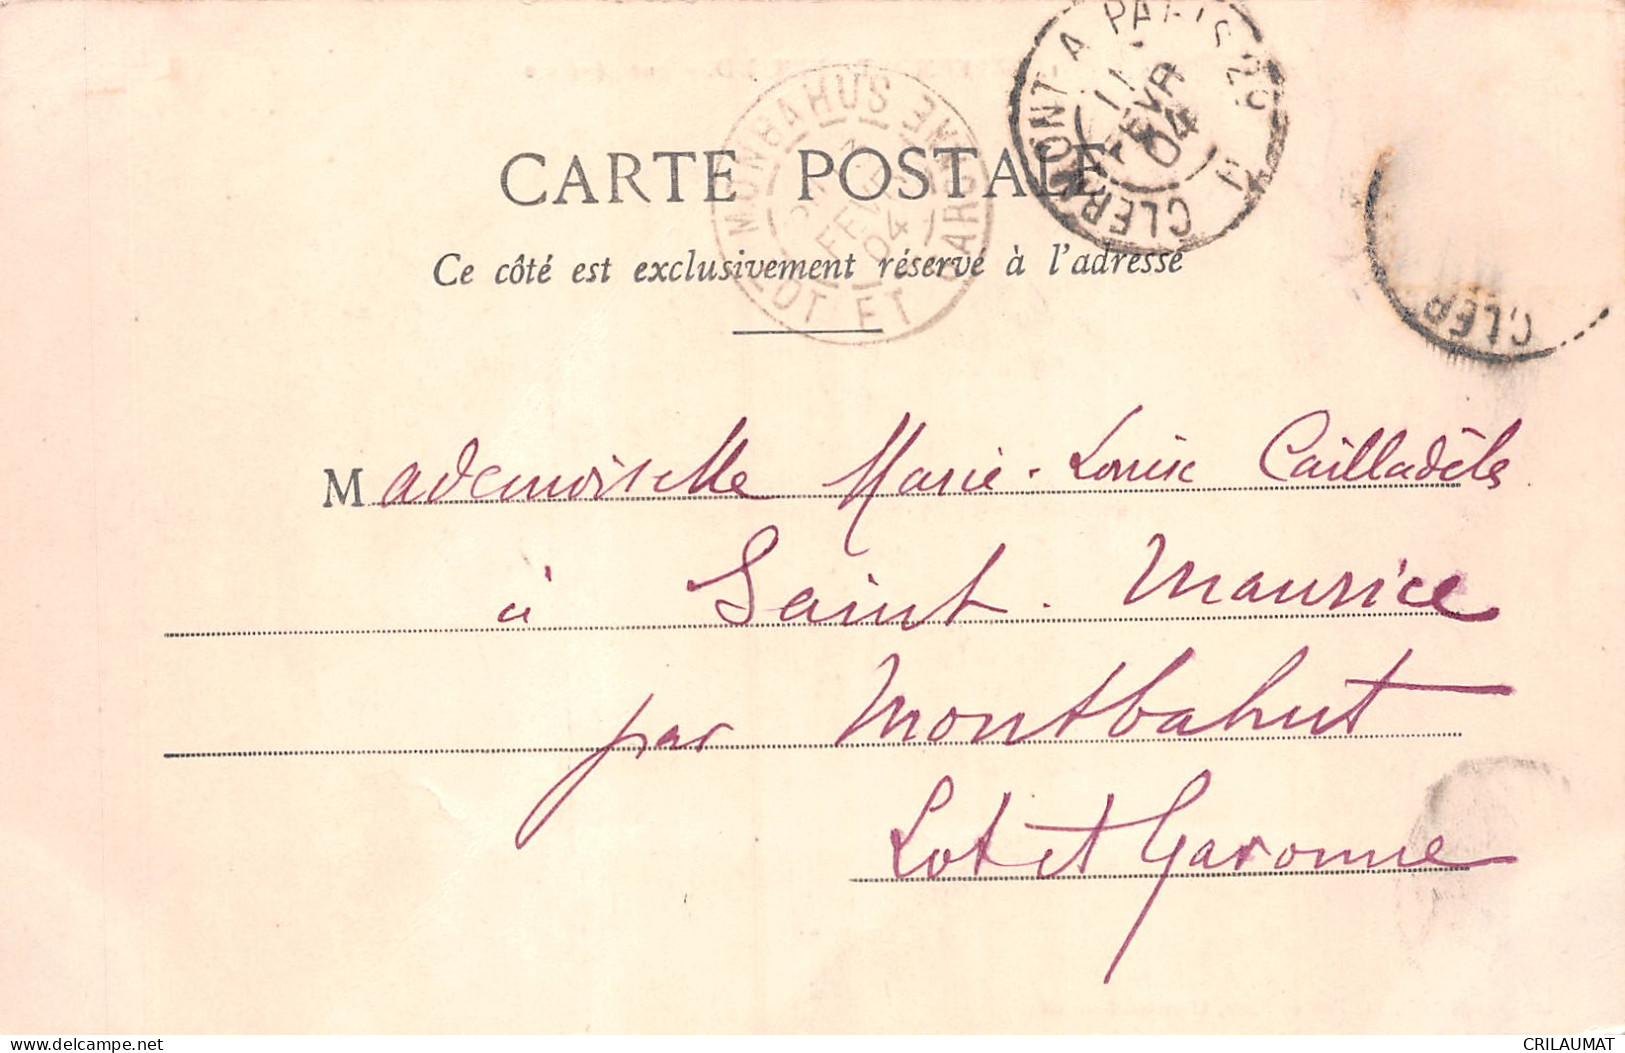 CARTE POSTALE
Ce côté est exclusivement réservé à l'adresse
MONBAHUS LOT ET GARONNE FEVR 04
CLERMONT A PARIS 11 FEVR 04
CLER
Mademoiselle Marie-Louise Cailladèls
à Saint-Maurice
par Montbahut
Lot et Garonne
delcampe.net
CRILAUMAT